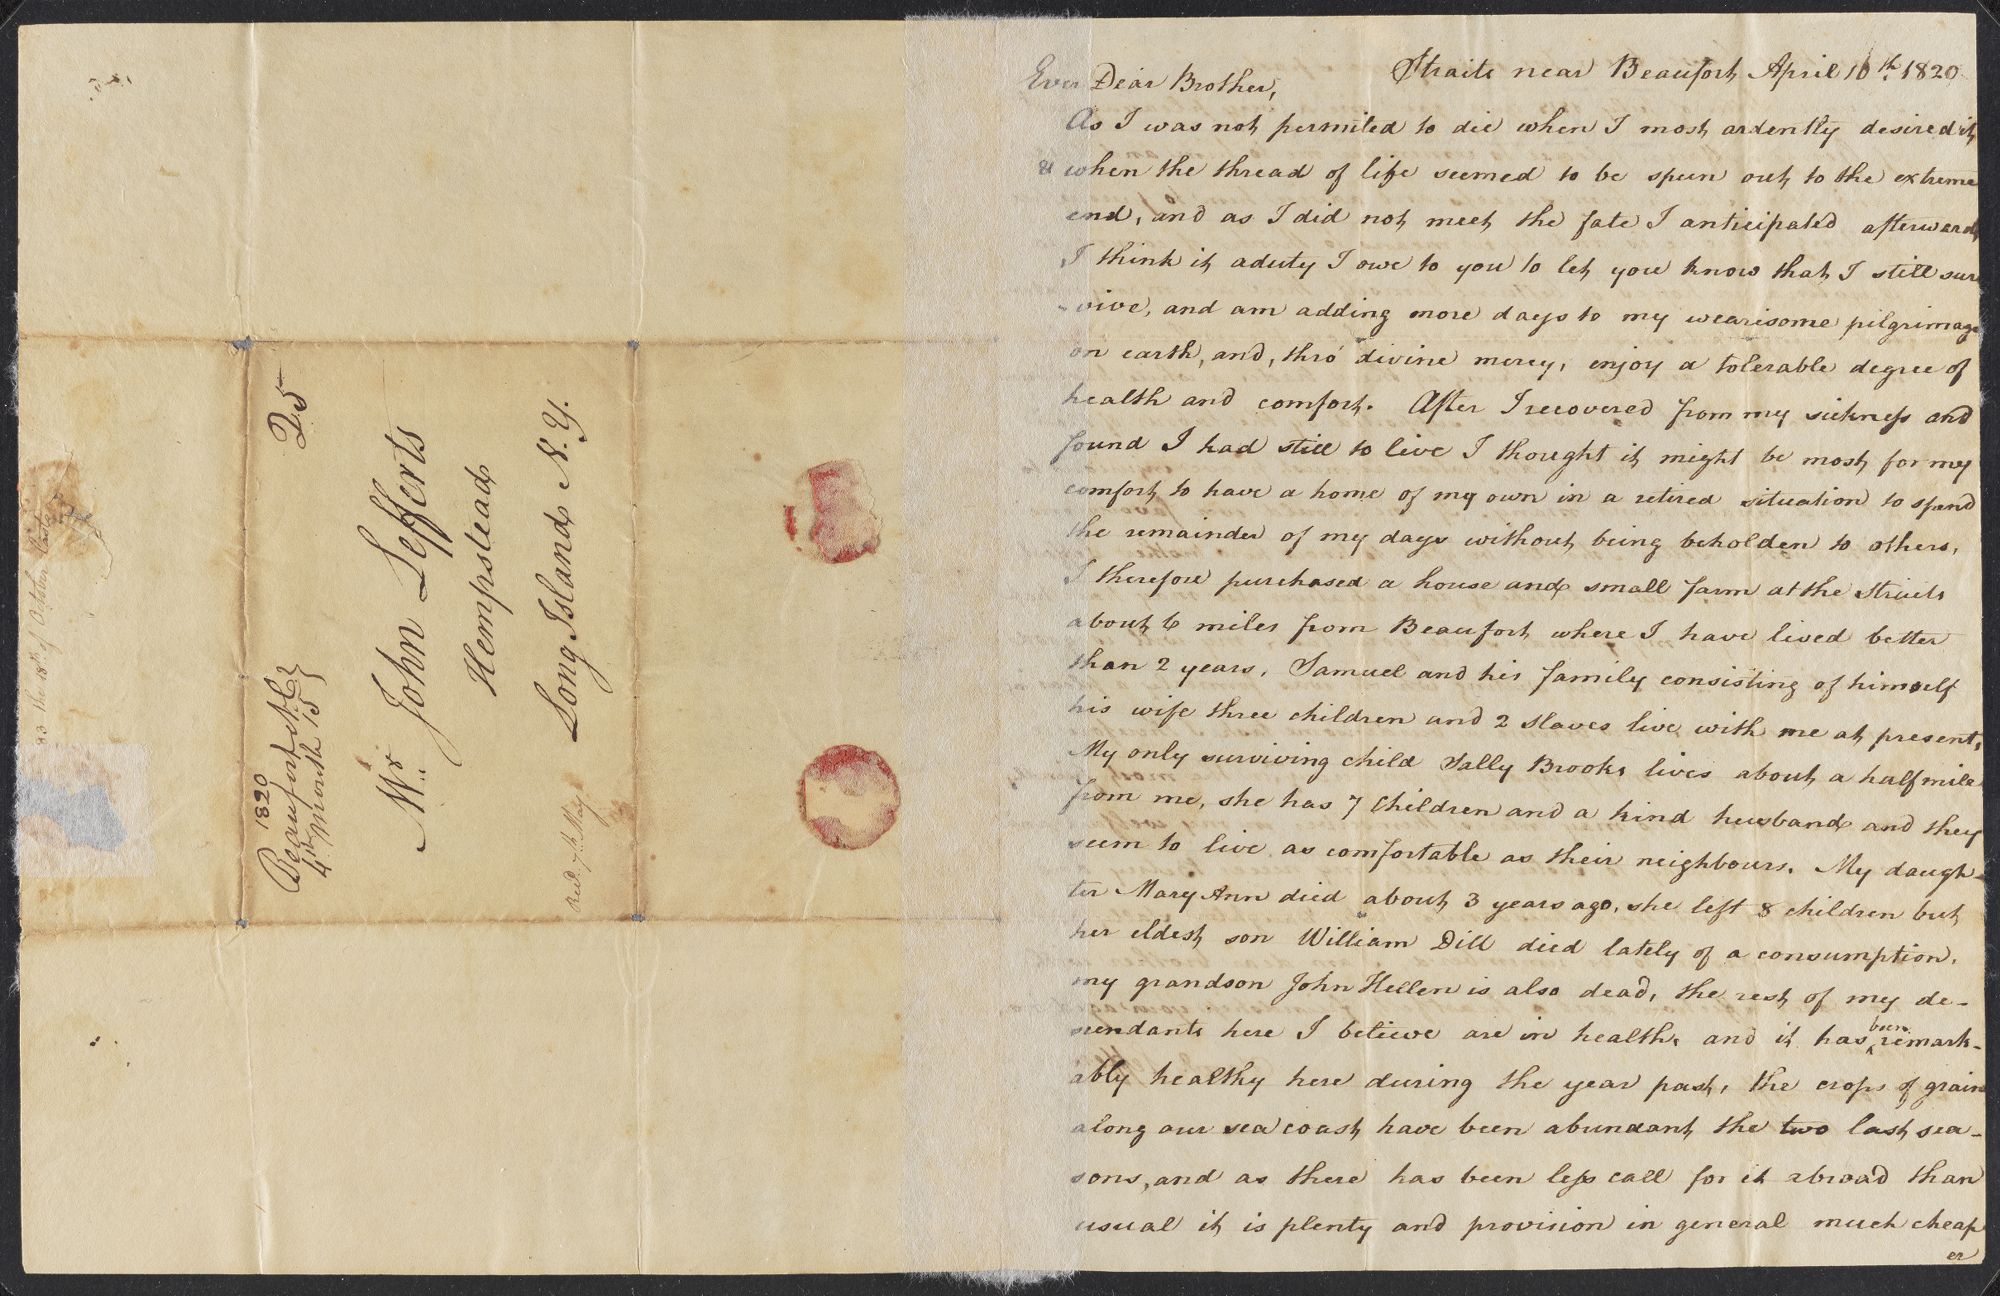 1820
Beaufort N.C.
4th Month 15
25
Mr. John Lefferts
Hempstead
Long Island N.Y.
Recd. 7th May
the 18th of October
Straits near Beaufort April 10th 1820
Ever Dear Brother,
As I was not permited to die when I most ardently desired it
& when the thread of life seemed to be spun out to the extreme
end, and as I did not meet the fate I anticipated afterwards
I think it a duty I owe to you to let you know that I still sur
-vive, and am adding more days to my wearisome pilgrimage
on earth, and, thro' divine mercy, enjoy a tolerable degree of
health and comfort. After I recovered from my sickness and
found I had still to live I thought it might be most for my
comfort to have a home of my own in a retired situation to spend
the remainder of my days without being beholden to others,
I therefore purchased a house and small farm at the Straits
about 6 miles from Beaufort where I have lived better
than 2 years. Samuel and his family consisting of himself
his wife three children and 2 slaves live with me at present,
My only surviving child Sally Brooks lives about a half mile
from me, she has 7 children and a kind husband and they
seem to live as comfortable as their neighbours. My daugh-
ter Mary Ann died about 3 years ago, she left 8 children but
her eldest son William Dill died lately of a consumption,
my grandson John Hellen is also dead, the rest of my de-
sendants here I believe are in health, and it has been remark-
ably healthy here during the year past, the crops of grain
along our sea coast have been abundant the two last sea-
sons, and as there has been less call for it abroad than
usual it is plenty and provision in general much cheap
er